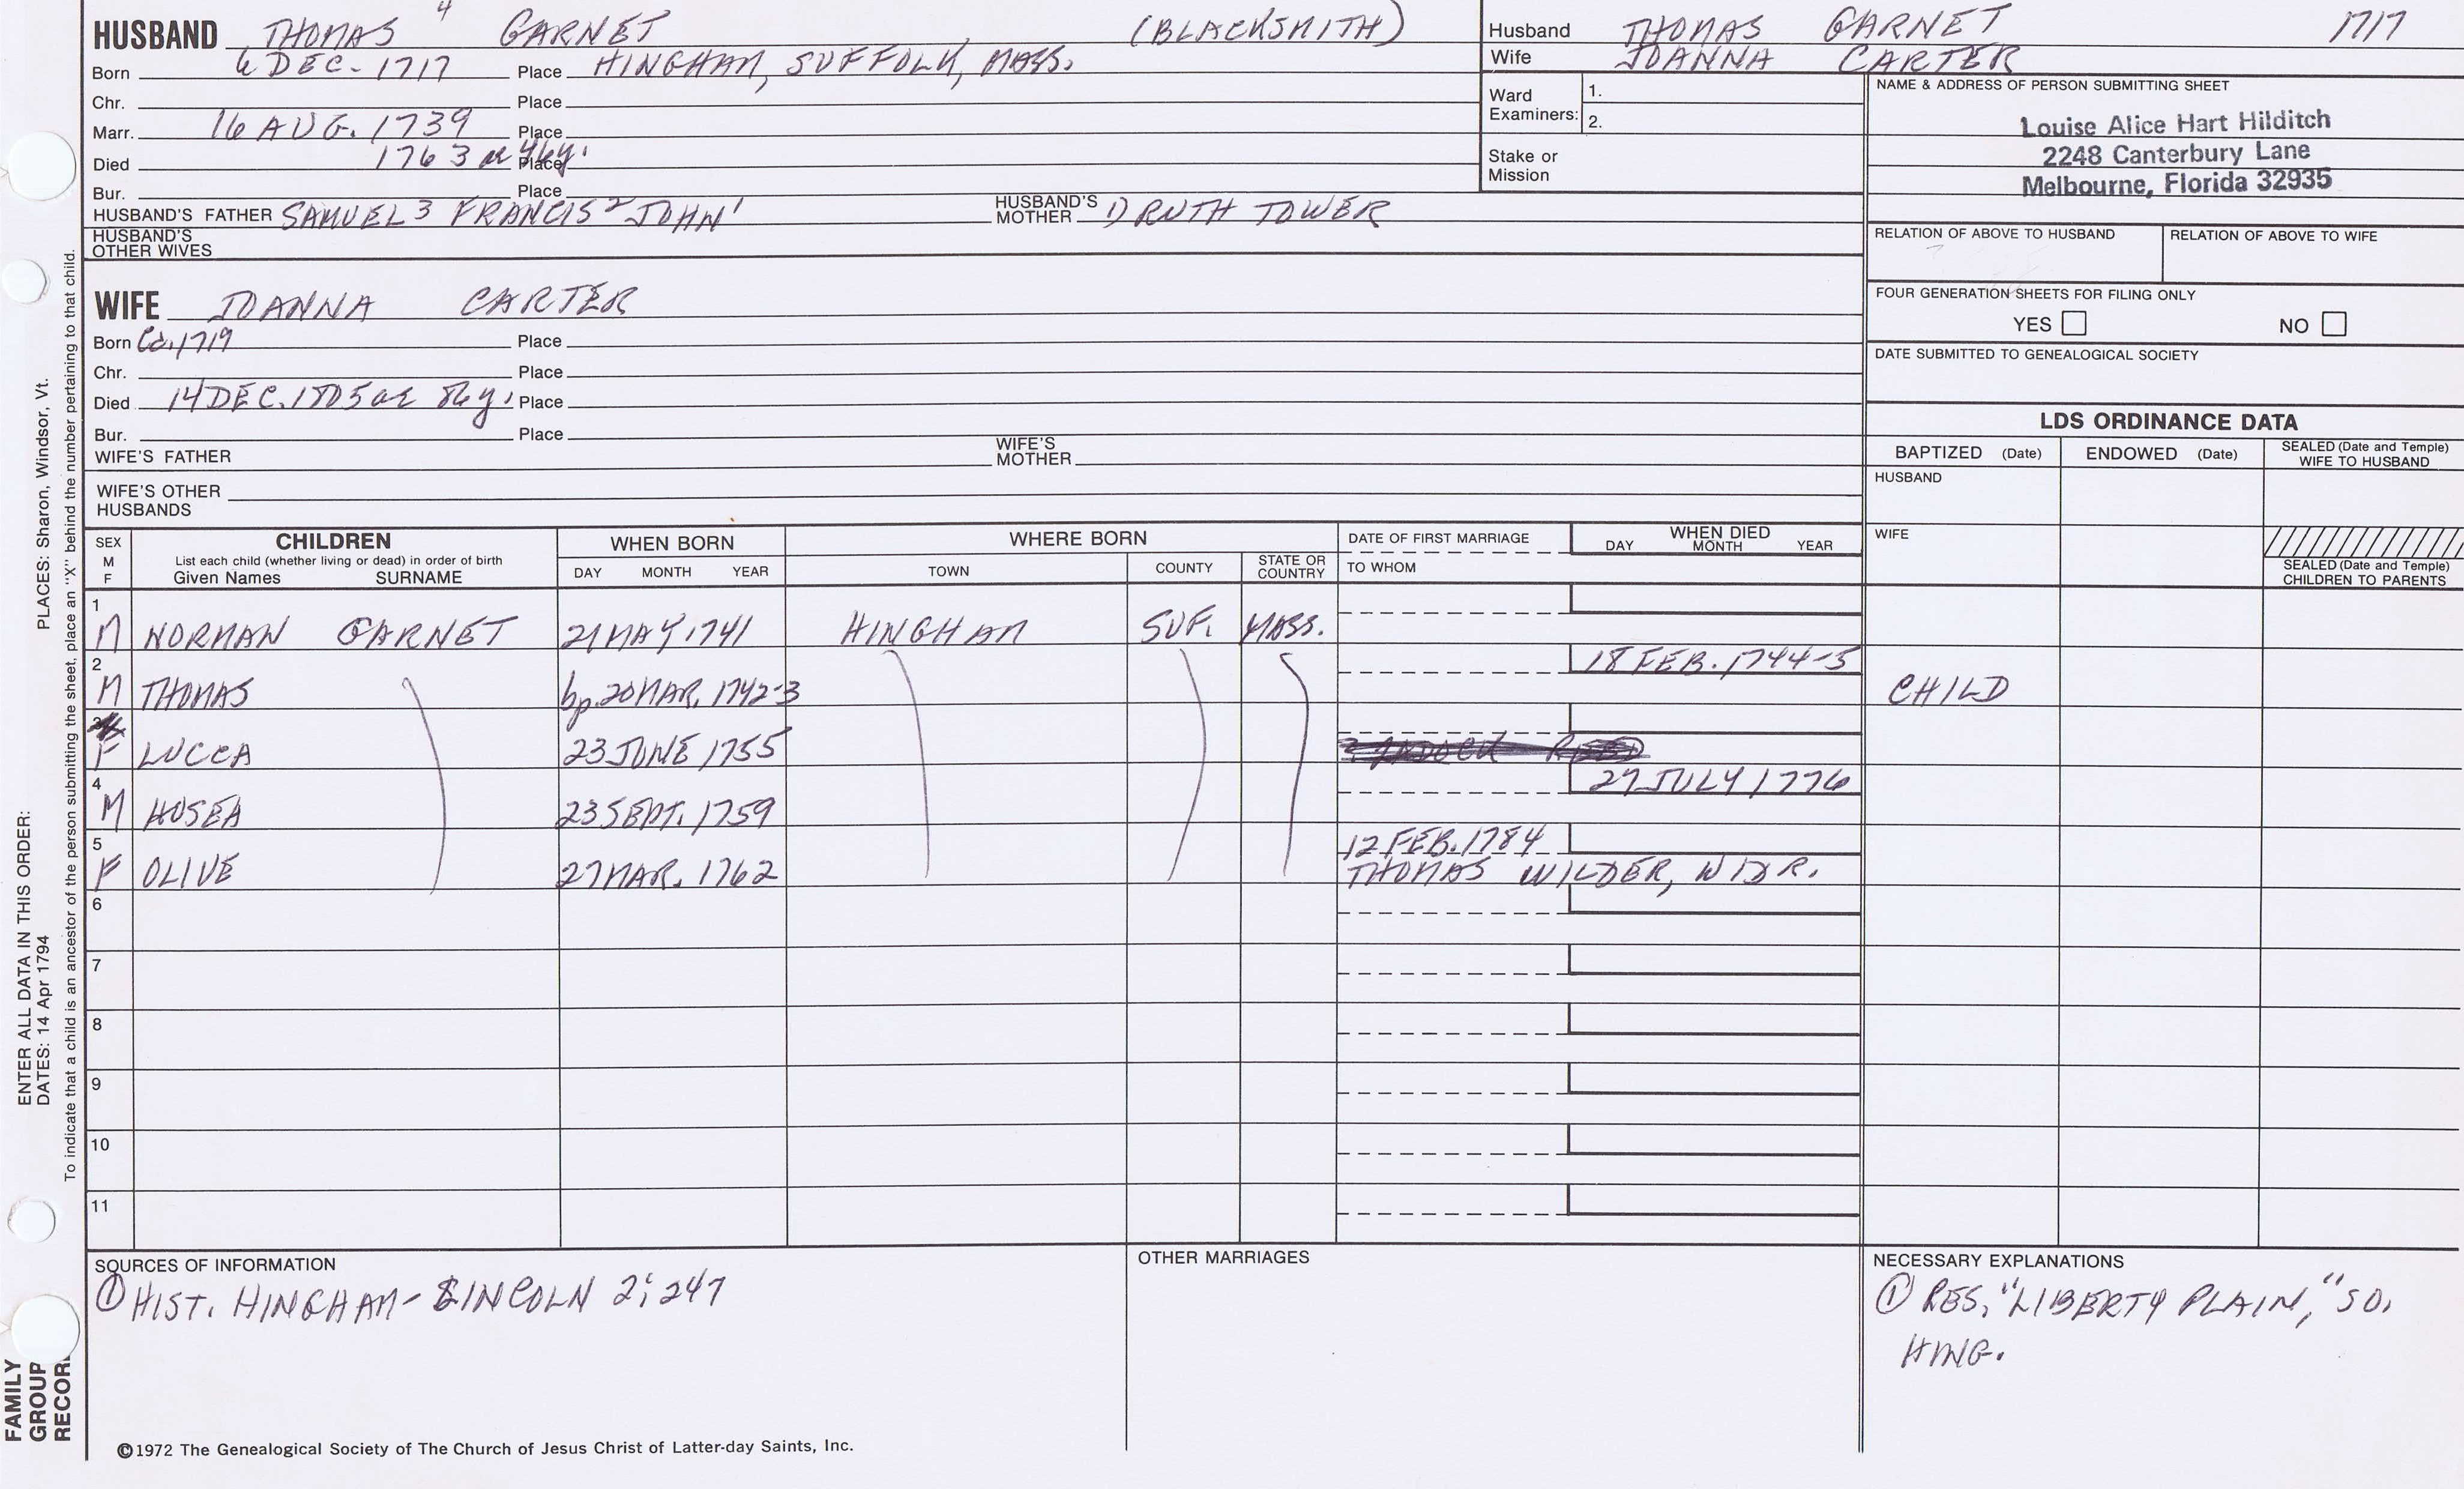 HUSBAND THOMAS 4 GARNET (BLACKSMITH)
Born 6 DEC. 1717 Place HINGHAM, SUFFOLK, MASS.
Chr. Place
Marr. 16 AUG. 1739 Place
Died 1763 ae 46y. Place
Bur. Place
HUSBAND'S FATHER SAMUEL 3 FRANCIS 2 JOHN 1 HUSBAND'S MOTHER 1) RUTH TOWER
HUSBAND'S OTHER WIVES
Husband THOMAS GARNET 1717
Wife JOANNA CARTER
Ward Examiners: 1.
2.
Stake or Mission
NAME & ADDRESS OF PERSON SUBMITTING SHEET
Louise Alice Hart Hilditch
2248 Canterbury Lane
Melbourne, Florida 32935
RELATION OF ABOVE TO HUSBAND RELATION OF ABOVE TO WIFE
FOUR GENERATION SHEETS FOR FILING ONLY
YES NO
DATE SUBMITTED TO GENEALOGICAL SOCIETY
WIFE JOANNA CARTER
Born Ca. 1719 Place
Chr. Place
Died 14 DEC. 1805 ae 86y. Place
Bur. Place
WIFE'S FATHER WIFE'S MOTHER
WIFE'S OTHER HUSBANDS
LDS ORDINANCE DATA
BAPTIZED (Date) ENDOWED (Date) SEALED (Date and Temple) WIFE TO HUSBAND
HUSBAND
WIFE
SEALED (Date and Temple) CHILDREN TO PARENTS
SEX M F CHILDREN List each child (whether living or dead) in order of birth Given Names SURNAME WHEN BORN DAY MONTH YEAR WHERE BORN TOWN COUNTY STATE OR COUNTRY DATE OF FIRST MARRIAGE TO WHOM WHEN DIED DAY MONTH YEAR
1 M NORMAN GARNET 21 MAY 1741 HINGHAM SUF. MASS.
2 M THOMAS bp. 20 MAR. 1742-3 18 FEB. 1744-5 CHILD
F LUCCA 23 JUNE 1755
4 M HOSEA 23 SEPT. 1759 27 JULY 1776
5 F OLIVE 27 MAR. 1762 12 FEB. 1784 THOMAS WILDER, WIDR.
6
7
8
9
10
11
SOURCES OF INFORMATION
① HIST. HINGHAM - LINCOLN 2; 247
OTHER MARRIAGES
NECESSARY EXPLANATIONS
① RES, "LIBERTY PLAIN," SO.
HING.
©1972 The Genealogical Society of The Church of Jesus Christ of Latter-day Saints, Inc.
ENTER ALL DATA IN THIS ORDER:
DATES: 14 Apr 1794 PLACES: Sharon, Windsor, Vt.
To indicate that a child is an ancestor of the person submitting the sheet, place an "X" behind the number pertaining to that child.
FAMILY
GROUP
RECOR